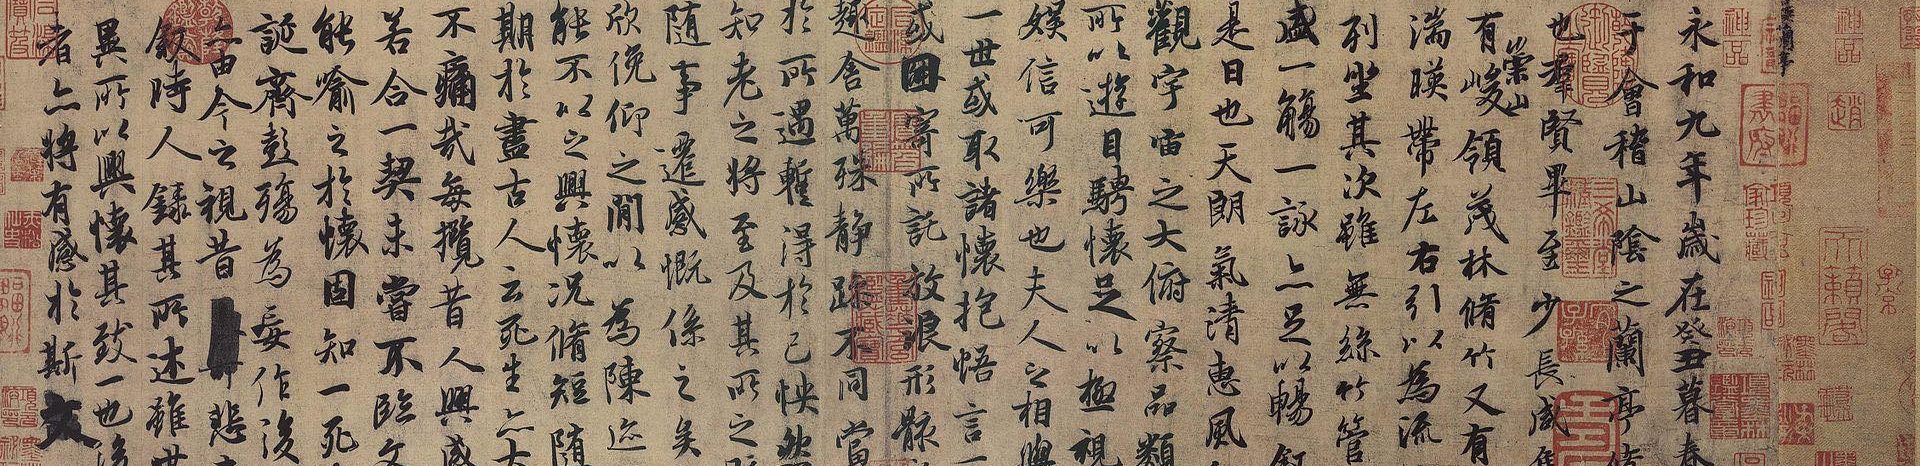 永和九年歲在癸丑暮春
于會稽山陰之蘭亭脩
也羣賢畢至少長咸集
有崇山峻領茂林脩竹又有
湍暎帶左右引以為流
列坐其次雖無絲竹管
盛一觴一詠亦足以暢叙
是日也天朗氣清惠風
觀宇宙之大俯察品類
所以遊目騁懷足以極視
娛信可樂也夫人之相與
一世或取諸懷抱悟言一
或因寄所託放浪形骸
趣舍萬殊靜躁不同當
於所遇暫得於己怏然
知老之將至及其所之既
隨事遷感慨係之矣
欣俛仰之閒以為陳迹
能不以之興懷況脩短隨
期於盡古人云死生亦大
不痛哉每攬昔人興感
若合一契未嘗不臨文
能喻之於懷固知一死
誕齊彭殤為妄作後
亦由今之視昔悲
敘時人錄其所述雖世
異所以興懷其致一也後
者亦將有感於斯文